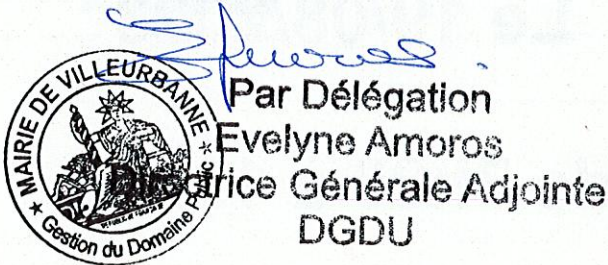 MAIRIE DE VILLEURBANNE
Gestion du Domaine Public
Par Délégation
Evelyne Amoros
Directrice Générale Adjointe
DGDU